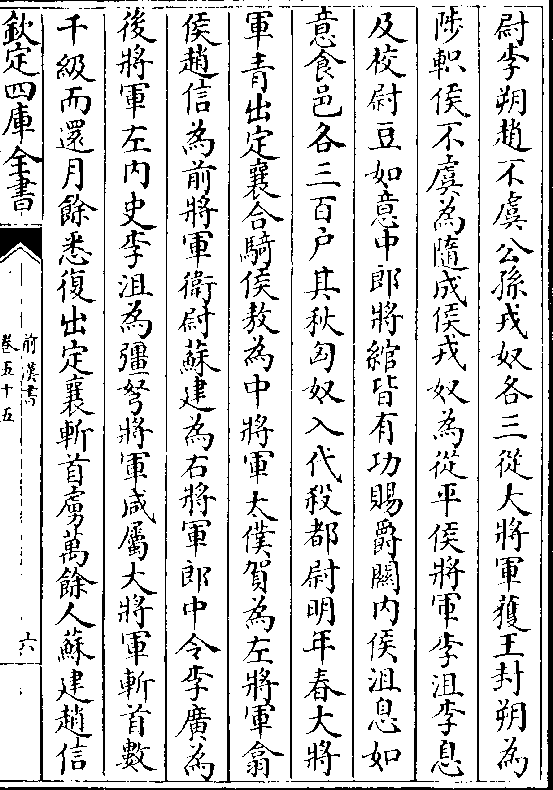 尉李朔趙不虞公孫戎奴各三從大將軍獲王封朔為
陟軹侯不虞為隨成侯戎奴為從平侯將軍李沮李息
及校尉豆如意中郎將綰皆有功賜爵關内侯沮息如
意食邑各三百户其秋匈奴入代殺都尉明年春大將
軍青出定襄合騎侯敖為中將軍太僕賀為左將軍翕
侯趙信為前將軍衛尉蘇建為右將軍郎中令李廣為
後將軍左内史李沮為彊弩將軍咸屬大將軍斬首數
千級而還月餘悉復出定襄斬首虜萬餘人蘇建趙信
欽定四庫全書
前漢書
卷五十五
六